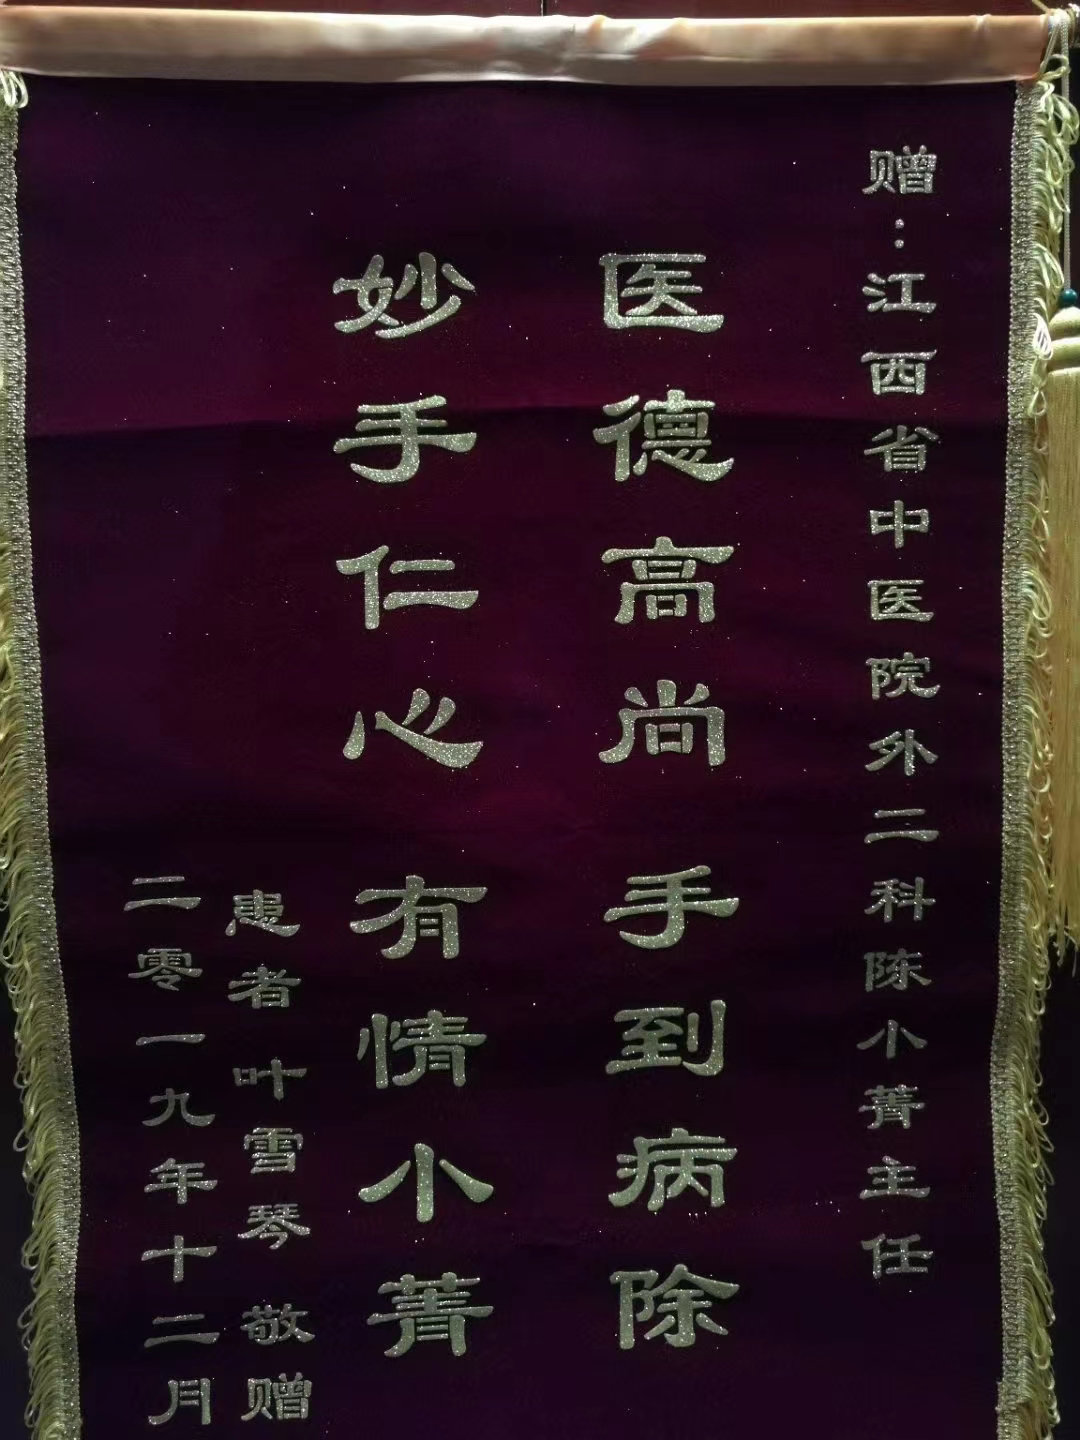 赠：江西省中医院外二科陈小菁主任
医德高尚 手到病除
妙手仁心 有情小菁
患者 叶雪琴 敬赠
二零一九年十二月